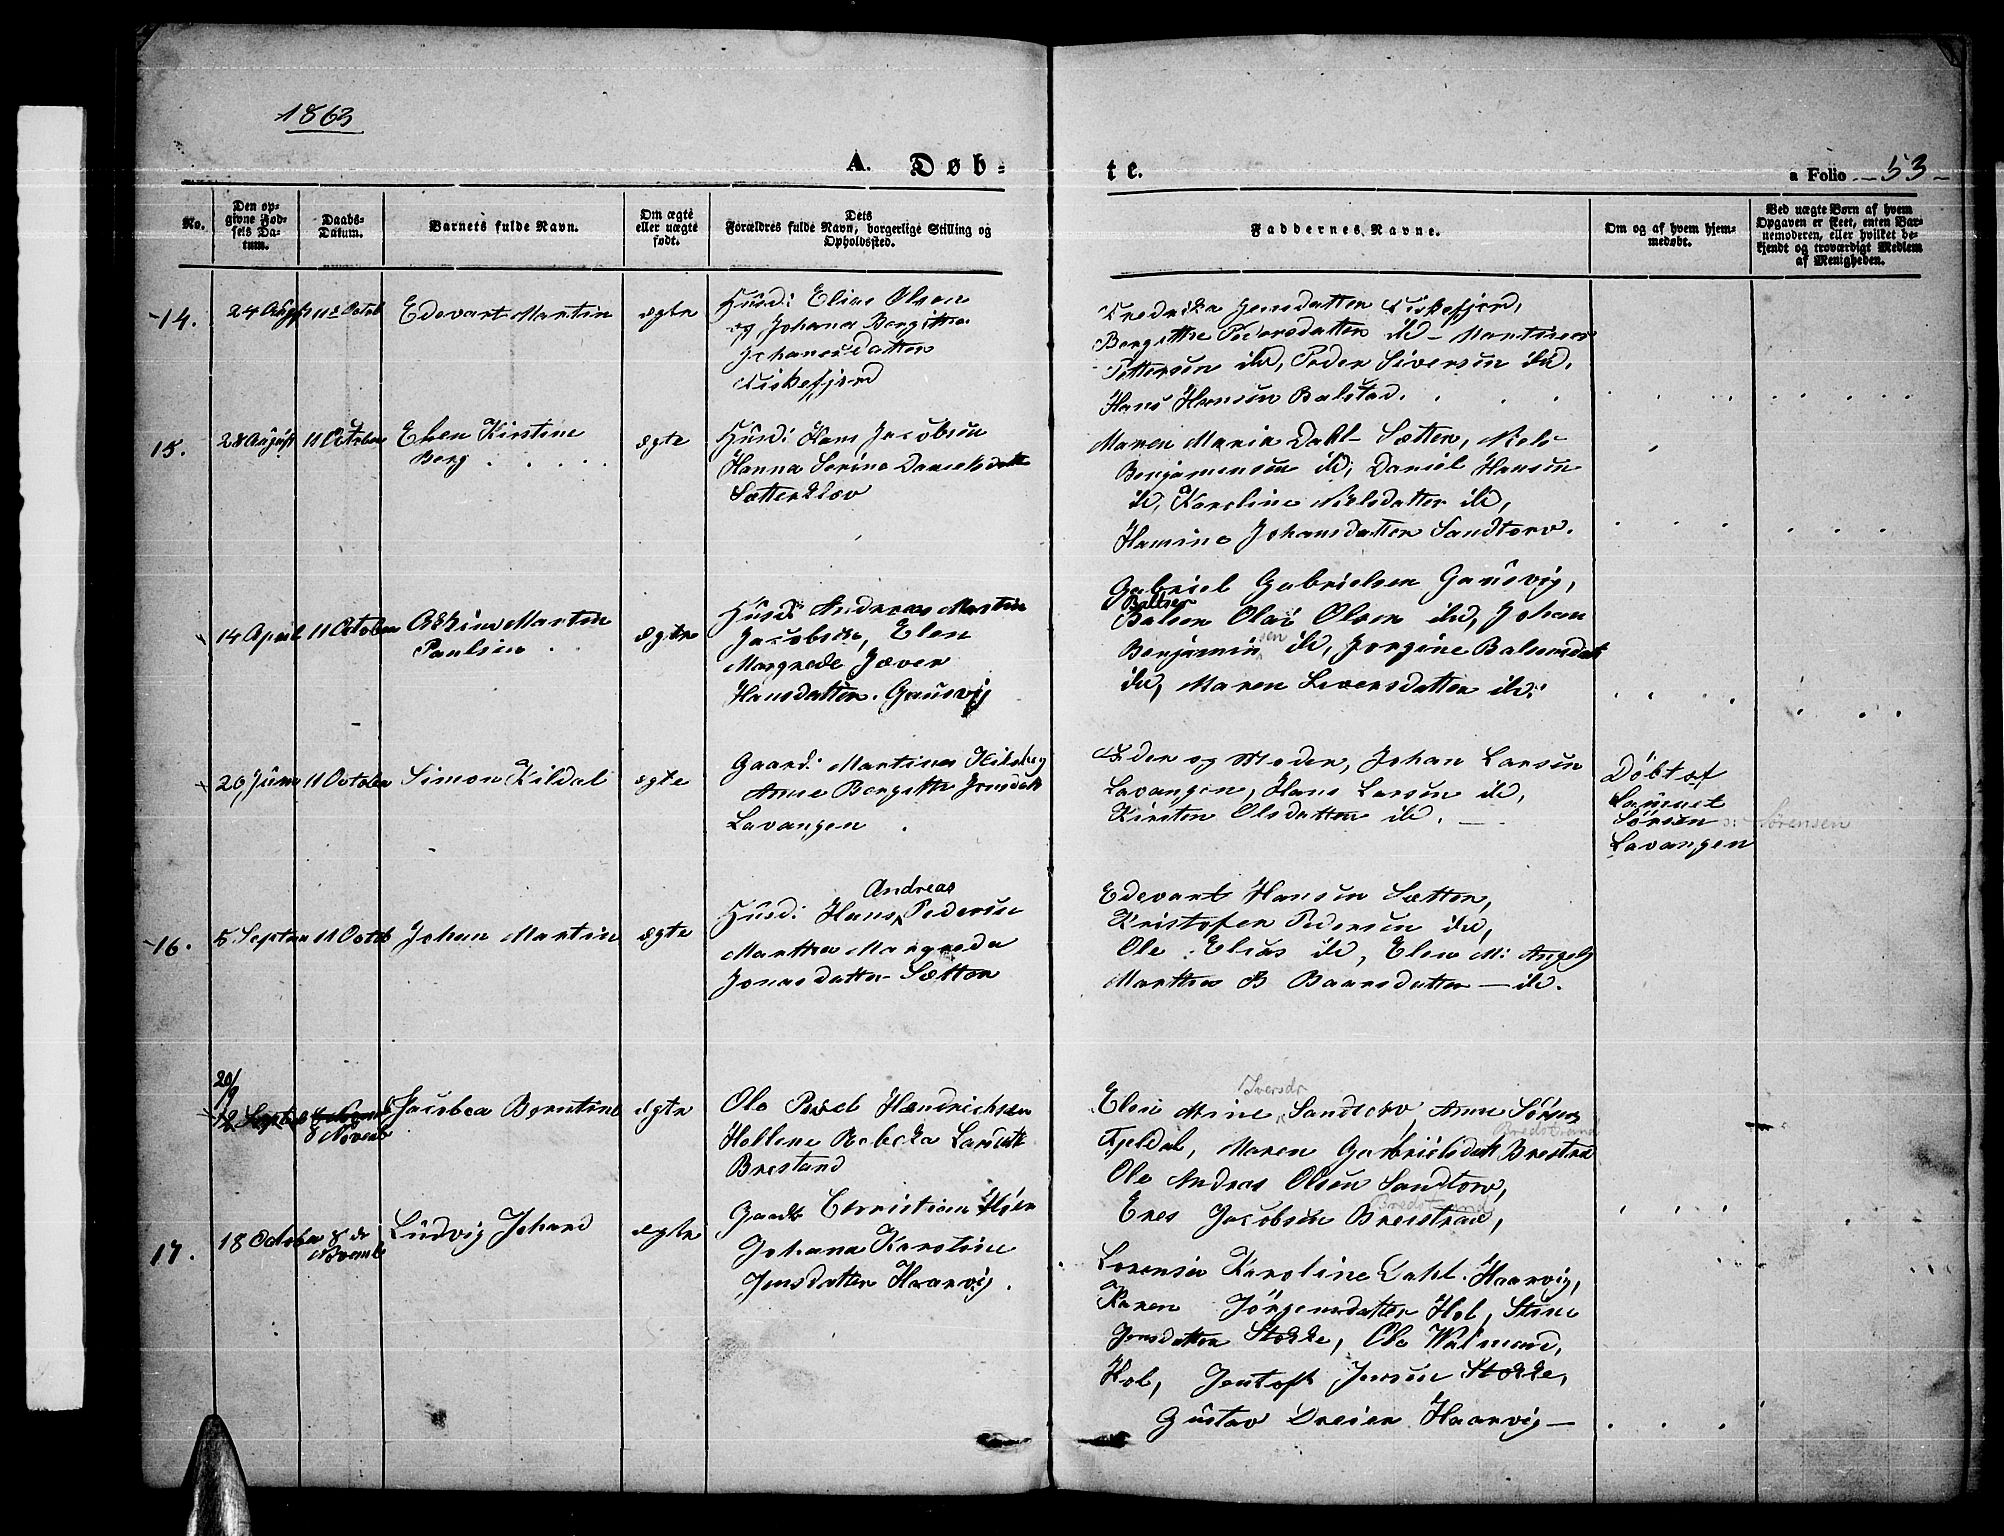 1863
A. Døb-
te.
a Folio 53
No.
Den op-
givne Fød-
sels Da-
tum.
Daabs-
Datum.
Barnets fulde Navn.
Om ægte
eller uægte
født.
Dets
Forældres fulde Navn, borgerlige Stilling og
Opholdssted.
Faddernes Navne.
Om og af hvem hjem-
medøbt.
Ved uægte Børn af hvem
Opgaven er skeet, enten Bar-
nemoderen, eller hvilket be-
kjendt og troværdigt Medlem
af Menigheden.
14.
24 August
11 Octob
Edevart Martin
ægte
Husd: Elias Olsen
og Johana Bergitte
Johanesdatter
Fiskefjord
Fredrika Jensdatter Fiskefjord,
Bergitte Pedersdatter ibd - Martines
Pettersen ibd, Peder Siversen ibd,
Hans Hansen Balstad.
15.
28 August
11 October
Elen Kirstine
Berg
ægte
Husd: Hans Jacobsen
Hanna Serine Danielsdatt
Sætterklov
Maren Maria Dahl- Sætter, Niels
Benjaminsen ibd, Daniel Hansen
ibd, Karoline Nielsdatter ibd,
Hamine Johansdatter Sandtorv.
14 April
11 October
Martin
Paulsen
ægte
Husd: Andreas Martin
Jacobsen, Elen
Margrede Jæver
Hansdatter. Gausvig
Gabriel Gabrielsen Gausvig,
Baltser
Balsen Olai Olsen ibd, Johan
Benjaminsen ibd, Jorgine Balsersdat
ibd, Maren Siversdatter ibd.
26 Juni
11 October
Simon Kildal
ægte
Gaard: Martines
Anne Bergitte Jensdatt
Lavangen
Fader og Moder, Johan Larsen
Lavangen, Hans Larsen ibd,
Kirsten Olsdatter ibd.
Døbt af
Samuel
Sørsen
Lavangen
Sørensen
16.
5 Septbr
11 Octob
Johan Martin
ægte
Andreas
Husd: Hans Pedersen
Marthe Margreda
Jonasdatter Sætter
Edevart Hansen Sætter,
Kristofer Pedersen ibd,
Ole Elias ibd, Elen M: Angel
Marthe B Baarsdatter - ibd.
20/9
12 Septbr
8 Novemb
8 Novemb
Jacobea Berntine
ægte
Ole Povel Hendrichsen
Hellene Rebeka Larsdt
Brestand
Iversdr
Elen Mine Sandtorv, Anne Sørens
Bredstrand
Fjeldal, Maren Gabrielsdatt Brestra
Ole Andreas Olsen Sandtorv,
Bredstrand
Enes Jacobsen Breistran,
17.
18 October
8 de
Novemb
Ludvig Johan
ægte
Gaard: Christian
Johana Karoline
Jensdatter Haarvig.
Lorense Karoline Dahl. Haarvig,
Karen Jörgensdatter Hol, Stine
Jensdatter Stokke, Ole Walmand,
Hol, Jentoft Jensen Stokke,
Gustav Dreier Haarvig